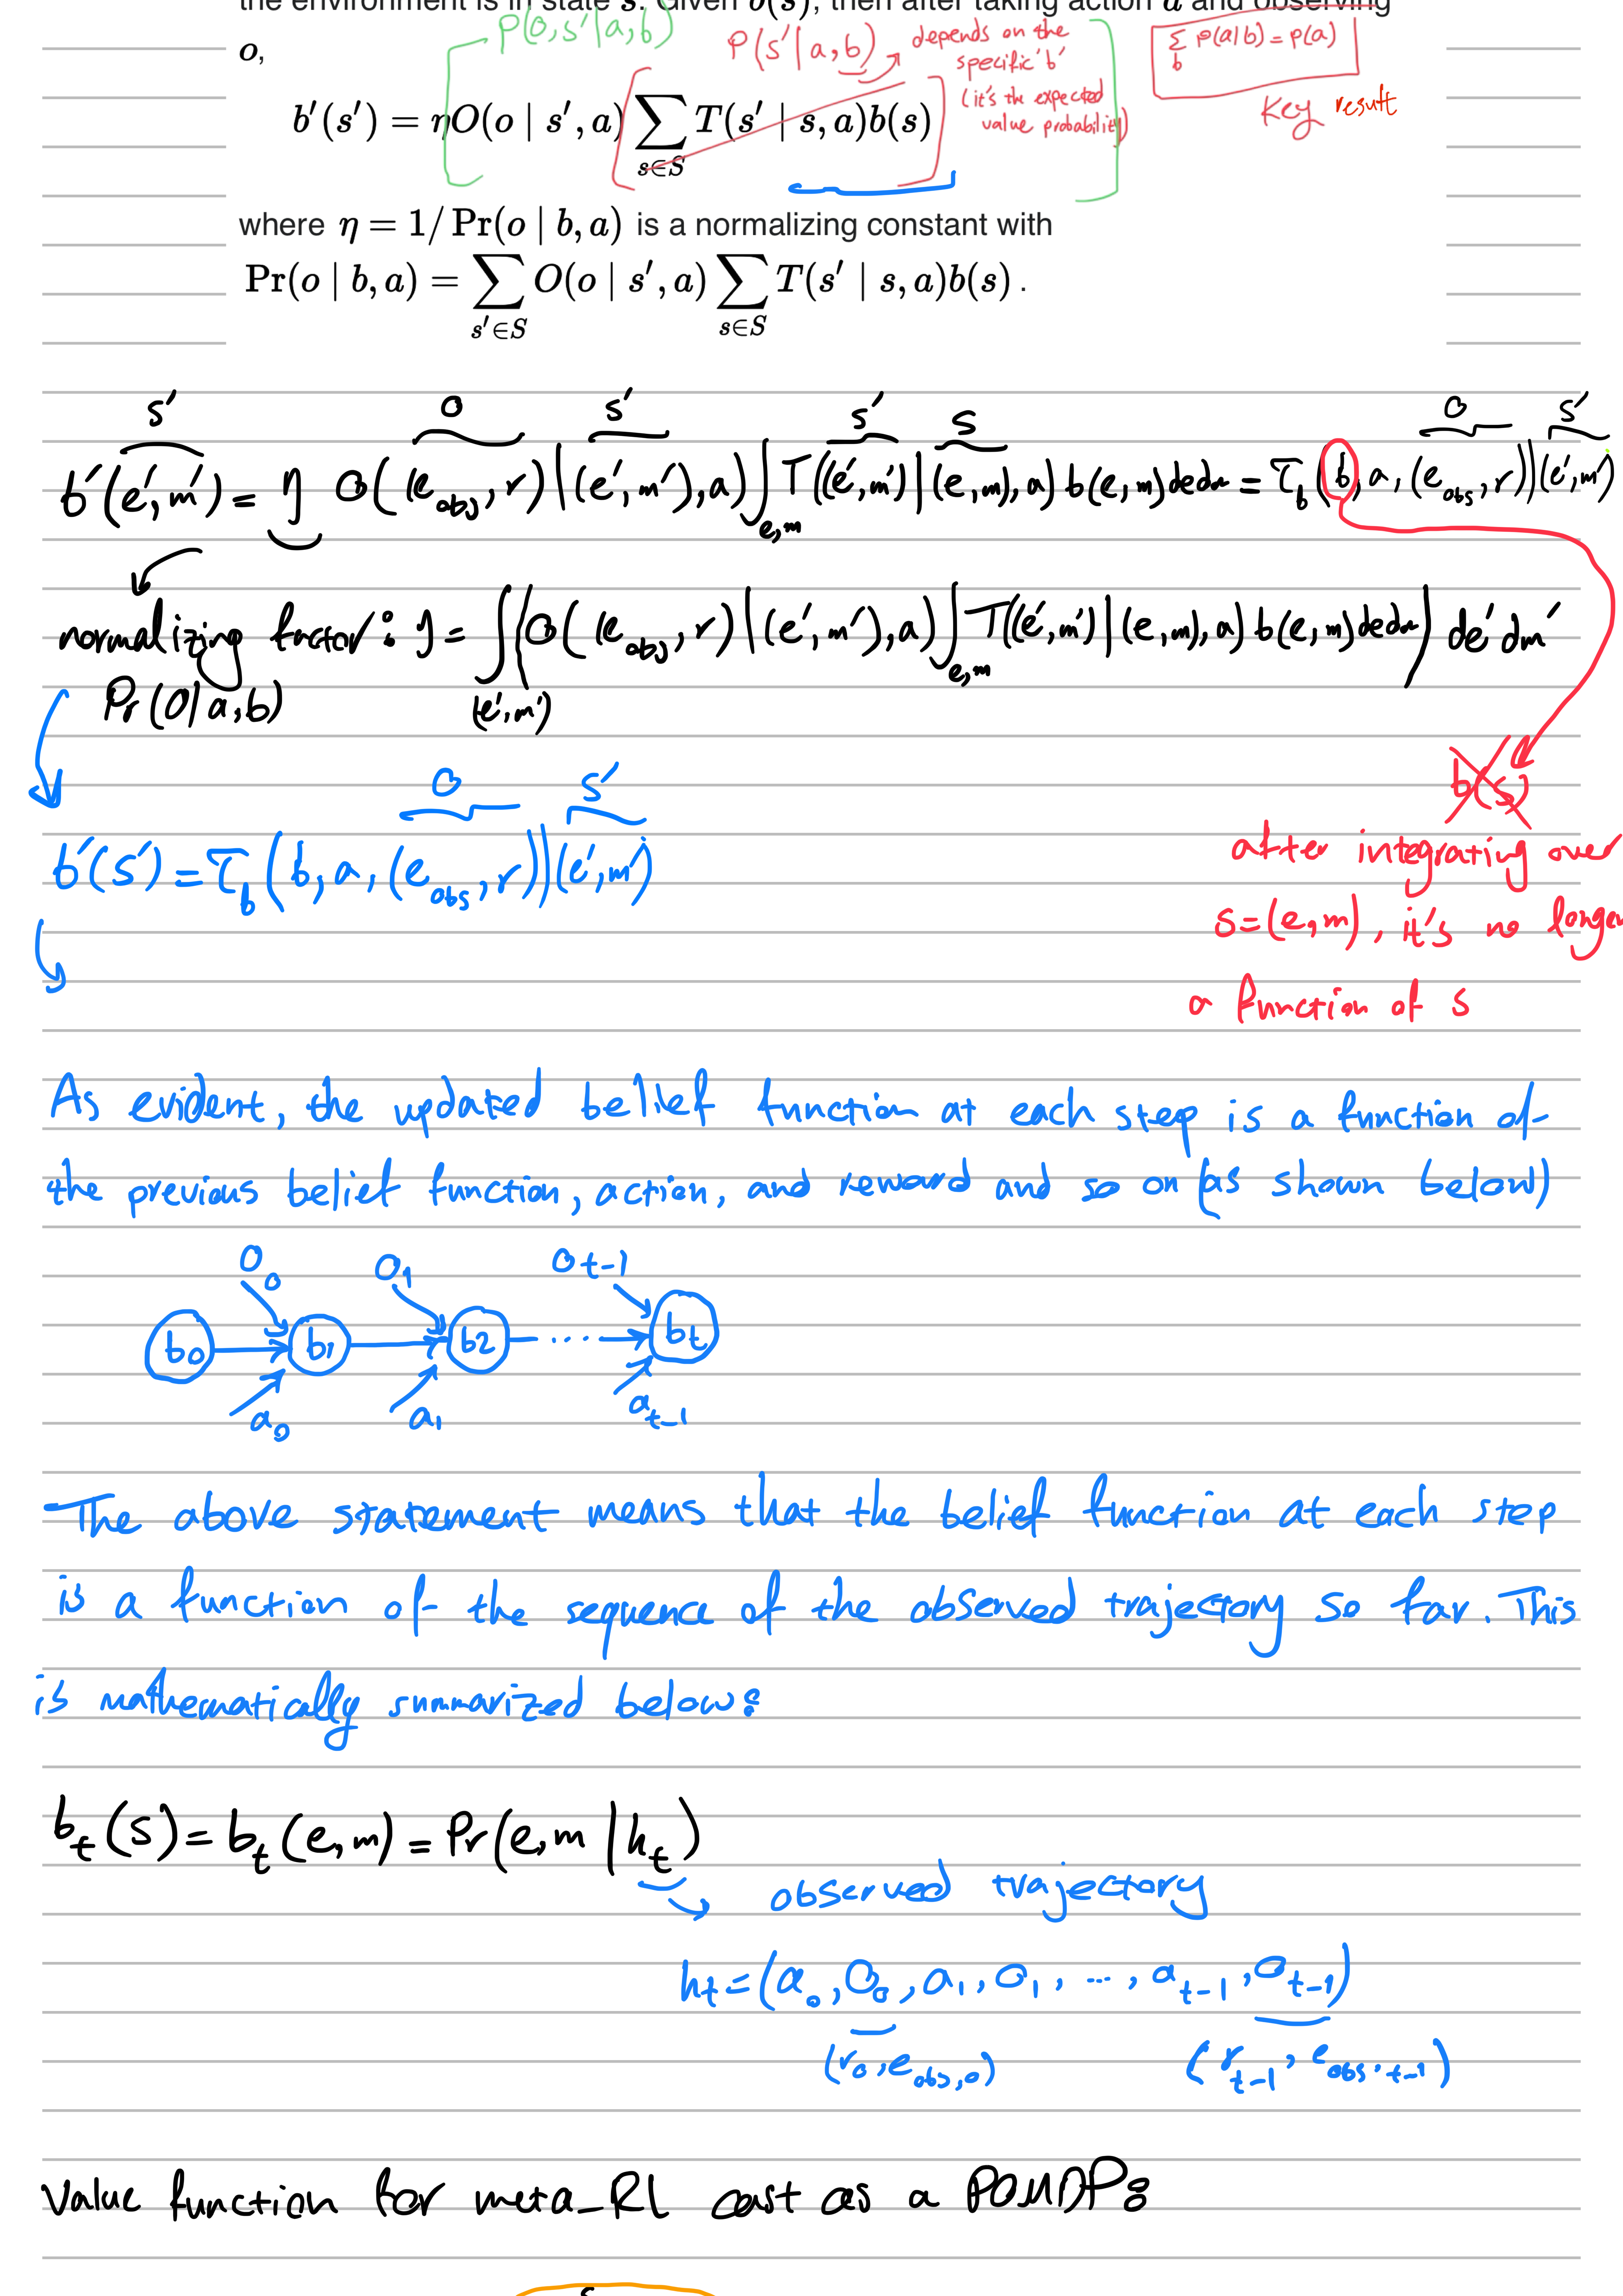 the environment is in state s. Given b(s), then after taking action a and observing
o,
P(o,s'|a,b)
P(s'|a,b)
depends on the
specific 'b'
(it's the expected
value probability)
∑_b p(a|b) = p(a)
Key result
b′(s′) = ηO(o | s′, a) ∑_{s∈S} T(s′ | s, a)b(s)
where η = 1/ Pr(o | b, a) is a normalizing constant with
Pr(o | b, a) = ∑_{s′∈S} O(o | s′, a) ∑_{s∈S} T(s′ | s, a)b(s) .
s' o s' s' s o s'
b'(e',m') = η O((e_obs, r)|(e',m'),a) ∫_{e,m} T((e',m')|(e,m),a) b(e,m) de dm = τ_b(b, a, (e_obs, r))(e',m')
normalizing factor: η = ∫_{(e',m')} (O((e_obs, r)|(e',m'),a) ∫_{e,m} T((e',m')|(e,m),a) b(e,m) de dm) de' dm'
Pr(O|a,b)
b(s)
after integrating over
s=(e,m), it's no longer
a function of s
o s'
b'(s') = τ_b(b, a, (e_obs, r))(e',m')
As evident, the updated belief function at each step is a function of
the previous belief function, action, and reward and so on (as shown below)
o_0 o_1 o_{t-1}
b_0 b_1 b_2 .... b_t
a_0 a_1 a_{t-1}
The above statement means that the belief function at each step
is a function of the sequence of the observed trajectory so far. This
is mathematically summarized below:
b_t(s) = b_t(e,m) = Pr(e,m | h_t)
observed trajectory
h_t = (a_0, o_0, a_1, o_1, ..., a_{t-1}, o_{t-1})
(r_0, e_{obs,0}) (r_{t-1}, e_{obs,t-1})
Value function for meta_RL cast as a POMDP: